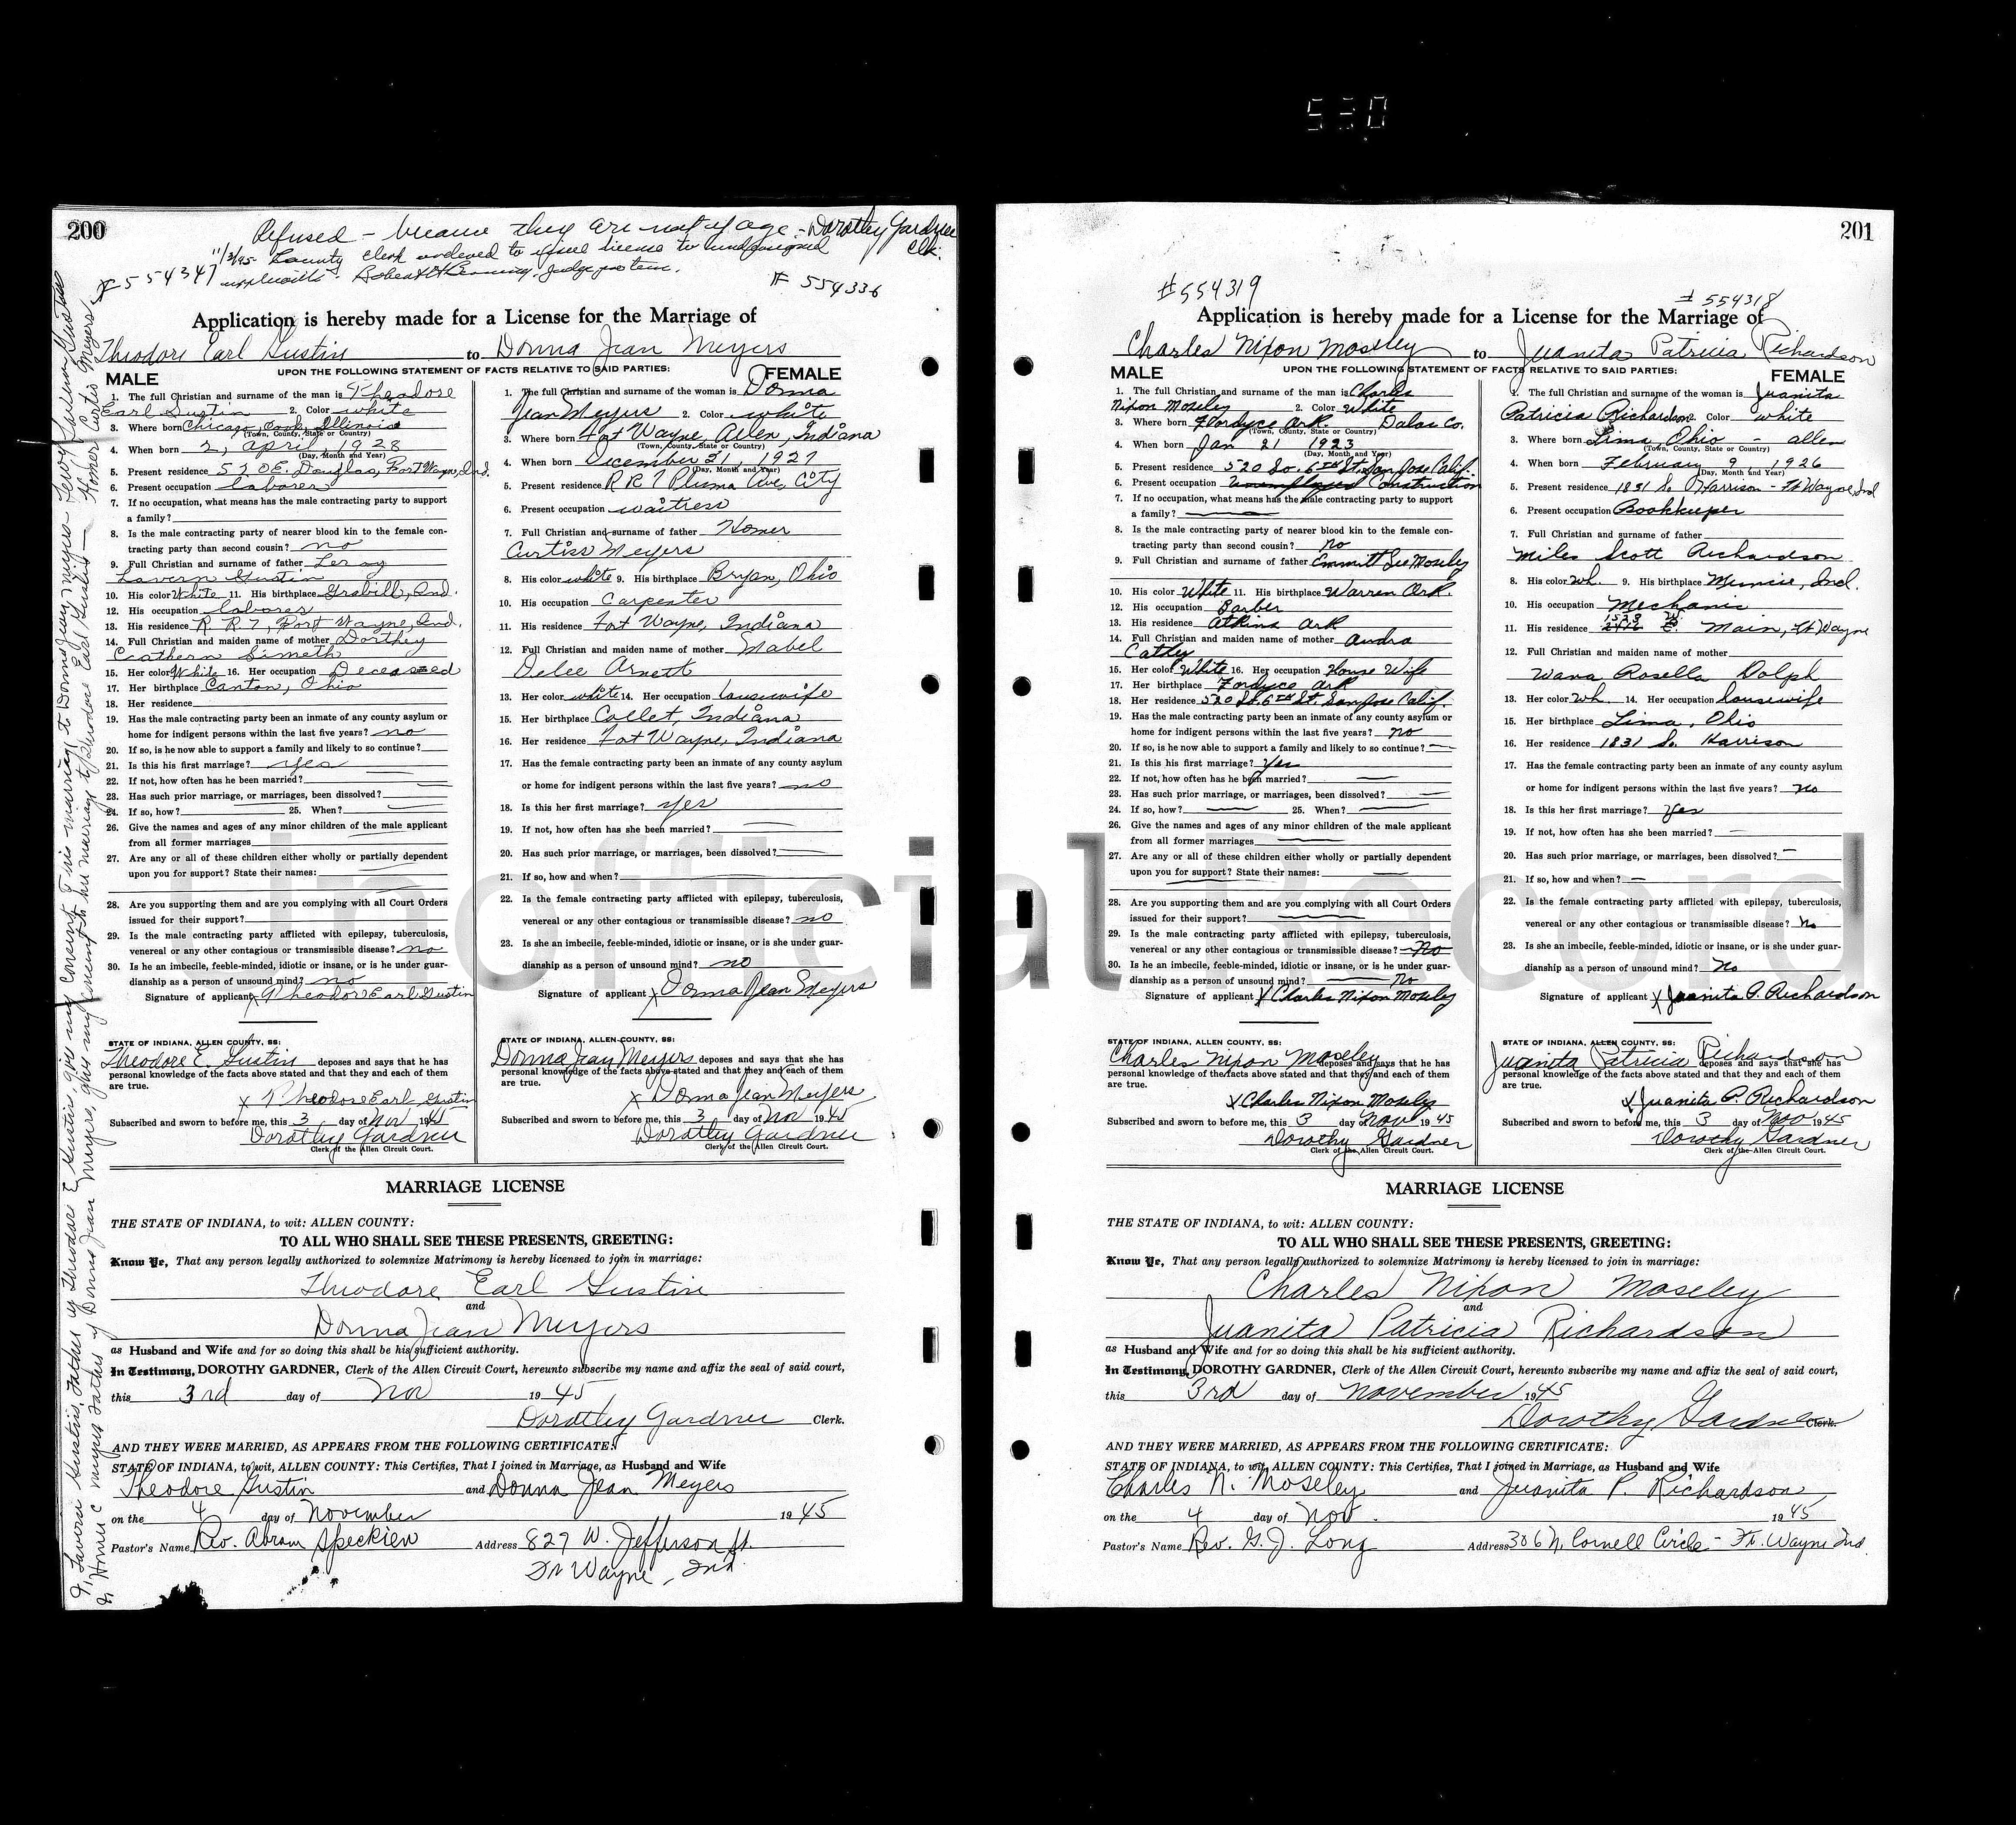 530
200
Refused - because they are not of age - Dorothy Gardner
Clk.
11/3/45 County Clerk ordered to issue license to undersigned
applicants - Judge protem.
# 554347
# 554336
Application is hereby made for a License for the Marriage of
Theodore Earl Gustin to Donna Jean Meyers
UPON THE FOLLOWING STATEMENT OF FACTS RELATIVE TO SAID PARTIES:
MALE
1. The full Christian and surname of the man is Theodore
Earl Gustin 2. Color white
3. Where born Chicago, Cook, Illinois
(Town, County, State or Country)
4. When born 2, april, 1928
(Day, Month and Year)
5. Present residence 520 E. Douglas, Fort Wayne, Ind.
6. Present occupation laborer
7. If no occupation, what means has the male contracting party to support
a family?
8. Is the male contracting party of nearer blood kin to the female con-
tracting party than second cousin? no
9. Full Christian and surname of father Leroy
Lavern Gustin
10. His color White 11. His birthplace Grabill, Ind.
12. His occupation laborer
13. His residence R. R. 7, Fort Wayne, Ind.
14. Full Christian and maiden name of mother Dorthey
15. Her color White 16. Her occupation Deceased
17. Her birthplace Canton, Ohio
18. Her residence
19. Has the male contracting party been an inmate of any county asylum or
home for indigent persons within the last five years? no
20. If so, is he now able to support a family and likely to so continue?
21. Is this his first marriage? yes
22. If not, how often has he been married?
23. Has such prior marriage, or marriages, been dissolved?
24. If so, how? 25. When?
26. Give the names and ages of any minor children of the male applicant
from all former marriages
27. Are any or all of these children either wholly or partially dependent
upon you for support? State their names:
28. Are you supporting them and are you complying with all Court Orders
issued for their support?
29. Is the male contracting party afflicted with epilepsy, tuberculosis,
venereal or any other contagious or transmissible disease? no
30. Is he an imbecile, feeble-minded, idiotic or insane, or is he under guar-
dianship as a person of unsound mind? no
Signature of applicant x Theodore Earl Gustin
STATE OF INDIANA, ALLEN COUNTY, SS:
Theodore E. Gustin deposes and says that he has
personal knowledge of the facts above stated and that they and each of them
are true.
x Theodore Earl Gustin
Subscribed and sworn to before me, this 3 day of Nov 1945
Dorothy Gardner
Clerk of the Allen Circuit Court.
FEMALE
1. The full Christian and surname of the woman is Donna
Jean Meyers 2. Color white
3. Where born Fort Wayne, Allen, Indiana
(Town, County, State or Country)
4. When born December 21, 1927
(Day, Month and Year)
5. Present residence R R 7 Pluma Ave, City
6. Present occupation waitress
7. Full Christian and surname of father Homer
Curtiss Meyers
8. His color white 9. His birthplace Bryan, Ohio
10. His occupation Carpenter
11. His residence Fort Wayne, Indiana
12. Full Christian and maiden name of mother Mabel
Delee Arnett
13. Her color white 14. Her occupation housewife
15. Her birthplace Collet, Indiana
16. Her residence Fort Wayne, Indiana
17. Has the female contracting party been an inmate of any county asylum
or home for indigent persons within the last five years? no
18. Is this her first marriage? yes
19. If not, how often has she been married?
20. Has such prior marriage, or marriages, been dissolved?
21. If so, how and when?
22. Is the female contracting party afflicted with epilepsy, tuberculosis,
venereal or any other contagious or transmissible disease? no
23. Is she an imbecile, feeble-minded, idiotic or insane, or is she under guar-
dianship as a person of unsound mind? no
Signature of applicant x Donna Jean Meyers
STATE OF INDIANA, ALLEN COUNTY, SS:
Donna Jean Meyers deposes and says that she has
personal knowledge of the facts above stated and that they and each of them
are true.
x Donna Jean Meyers
Subscribed and sworn to before me, this 3 day of Nov 1945
Dorothy Gardner
Clerk of the Allen Circuit Court.
MARRIAGE LICENSE
THE STATE OF INDIANA, to wit: ALLEN COUNTY:
TO ALL WHO SHALL SEE THESE PRESENTS, GREETING:
Know Ye, That any person legally authorized to solemnize Matrimony is hereby licensed to join in marriage:
Theodore Earl Gustin
and
Donna Jean Meyers
as Husband and Wife and for so doing this shall be his sufficient authority.
In Testimony, DOROTHY GARDNER, Clerk of the Allen Circuit Court, hereunto subscribe my name and affix the seal of said court,
this 3rd day of Nov 1945
Dorothy Gardner Clerk.
AND THEY WERE MARRIED, AS APPEARS FROM THE FOLLOWING CERTIFICATE:
STATE OF INDIANA, to wit, ALLEN COUNTY: This Certifies, That I joined in Marriage, as Husband and Wife
Theodore Gustin and Donna Jean Meyers
on the 4 day of November 1945
Pastor's Name Rev. Abram Speckien Address 827 W. Jefferson St.
Ft Wayne, Ind
I, Lavern Gustin, father of Theodore E Gustin give my consent to his marriage to Donna Jean Meyers - Leroy Lavern Gustin
I, Homer C Meyers father of Donna Jean Meyers, give my consent to her marriage to Theodore Earl Gustin - Homer Curtis Meyers
201
#554319
# 554318
Application is hereby made for a License for the Marriage of
Charles Nixon Moseley to Juanita Patricia Richardson
UPON THE FOLLOWING STATEMENT OF FACTS RELATIVE TO SAID PARTIES:
MALE
1. The full Christian and surname of the man is Charles
Nixon Moseley 2. Color White
3. Where born Fordyce Ark. Dalas Co.
(Town, County, State or Country)
4. When born Jan 21 1923
(Day, Month and Year)
5. Present residence 520 So. 6th St. San Jose Calif.
6. Present occupation Unemployed Construction
7. If no occupation, what means has the male contracting party to support
a family?
8. Is the male contracting party of nearer blood kin to the female con-
tracting party than second cousin? no
9. Full Christian and surname of father Emmitt Lee Moseley
10. His color White 11. His birthplace Warren Ark.
12. His occupation Barber
13. His residence Atkins Ark
14. Full Christian and maiden name of mother Audra
Cathey
15. Her color White 16. Her occupation House Wife
17. Her birthplace Fordyce Ark
18. Her residence 520 So. 6th St. San Jose Calif.
19. Has the male contracting party been an inmate of any county asylum or
home for indigent persons within the last five years? no
20. If so, is he now able to support a family and likely to so continue?
21. Is this his first marriage? Yes
22. If not, how often has he been married?
23. Has such prior marriage, or marriages, been dissolved?
24. If so, how? 25. When?
26. Give the names and ages of any minor children of the male applicant
from all former marriages
27. Are any or all of these children either wholly or partially dependent
upon you for support? State their names:
28. Are you supporting them and are you complying with all Court Orders
issued for their support?
29. Is the male contracting party afflicted with epilepsy, tuberculosis,
venereal or any other contagious or transmissible disease? No
30. Is he an imbecile, feeble-minded, idiotic or insane, or is he under guar-
dianship as a person of unsound mind? No
Signature of applicant x Charles Nixon Moseley
STATE OF INDIANA, ALLEN COUNTY, SS:
Charles Nixon Moseley deposes and says that he has
personal knowledge of the facts above stated and that they and each of them
are true.
x Charles Nixon Moseley
Subscribed and sworn to before me, this 3 day Nov 1945
Dorothy Gardner
Clerk of the Allen Circuit Court.
FEMALE
1. The full Christian and surname of the woman is Juanita
Patricia Richardson 2. Color white
3. Where born Lima, Ohio - allen
(Town, County, State or Country)
4. When born February 9 1926
(Day, Month and Year)
5. Present residence 1831 So Harrison - Ft Wayne, Ind
6. Present occupation Bookkeeper
7. Full Christian and surname of father
Miles Scott Richardson
8. His color Wh. 9. His birthplace Muncie, Ind.
10. His occupation Mechanic
11. His residence 1523 W. Main, Ft Wayne
12. Full Christian and maiden name of mother
Wava Rosella Dolph
13. Her color Wh. 14. Her occupation housewife
15. Her birthplace Lima, Ohio
16. Her residence 1831 So. Harrison
17. Has the female contracting party been an inmate of any county asylum
or home for indigent persons within the last five years? no
18. Is this her first marriage? Yes
19. If not, how often has she been married?
20. Has such prior marriage, or marriages, been dissolved?
21. If so, how and when?
22. Is the female contracting party afflicted with epilepsy, tuberculosis,
venereal or any other contagious or transmissible disease? No
23. Is she an imbecile, feeble-minded, idiotic or insane, or is she under guar-
dianship as a person of unsound mind? No
Signature of applicant x Juanita P. Richardson
STATE OF INDIANA, ALLEN COUNTY, SS:
Juanita Patricia Richardson deposes and says that she has
personal knowledge of the facts above stated and that they and each of them
are true.
x Juanita P. Richardson
Subscribed and sworn to before me, this 3 day of Nov 1945
Dorothy Gardner
Clerk of the Allen Circuit Court.
MARRIAGE LICENSE
THE STATE OF INDIANA, to wit: ALLEN COUNTY:
TO ALL WHO SHALL SEE THESE PRESENTS, GREETING:
Know Ye, That any person legally authorized to solemnize Matrimony is hereby licensed to join in marriage:
Charles Nixon Moseley
and
Juanita Patricia Richardson
as Husband and Wife and for so doing this shall be his sufficient authority.
In Testimony, DOROTHY GARDNER, Clerk of the Allen Circuit Court, hereunto subscribe my name and affix the seal of said court,
this 3rd day of November 1945
Dorothy Gardner Clerk.
AND THEY WERE MARRIED, AS APPEARS FROM THE FOLLOWING CERTIFICATE:
STATE OF INDIANA, to wit, ALLEN COUNTY: This Certifies, That I joined in Marriage, as Husband and Wife
Charles N. Moseley and Juanita P. Richardson
on the 4 day of Nov. 1945
Pastor's Name Rev. G. J. Long Address 306 N. Cornell Circle - Ft. Wayne Ind
Unofficial Record